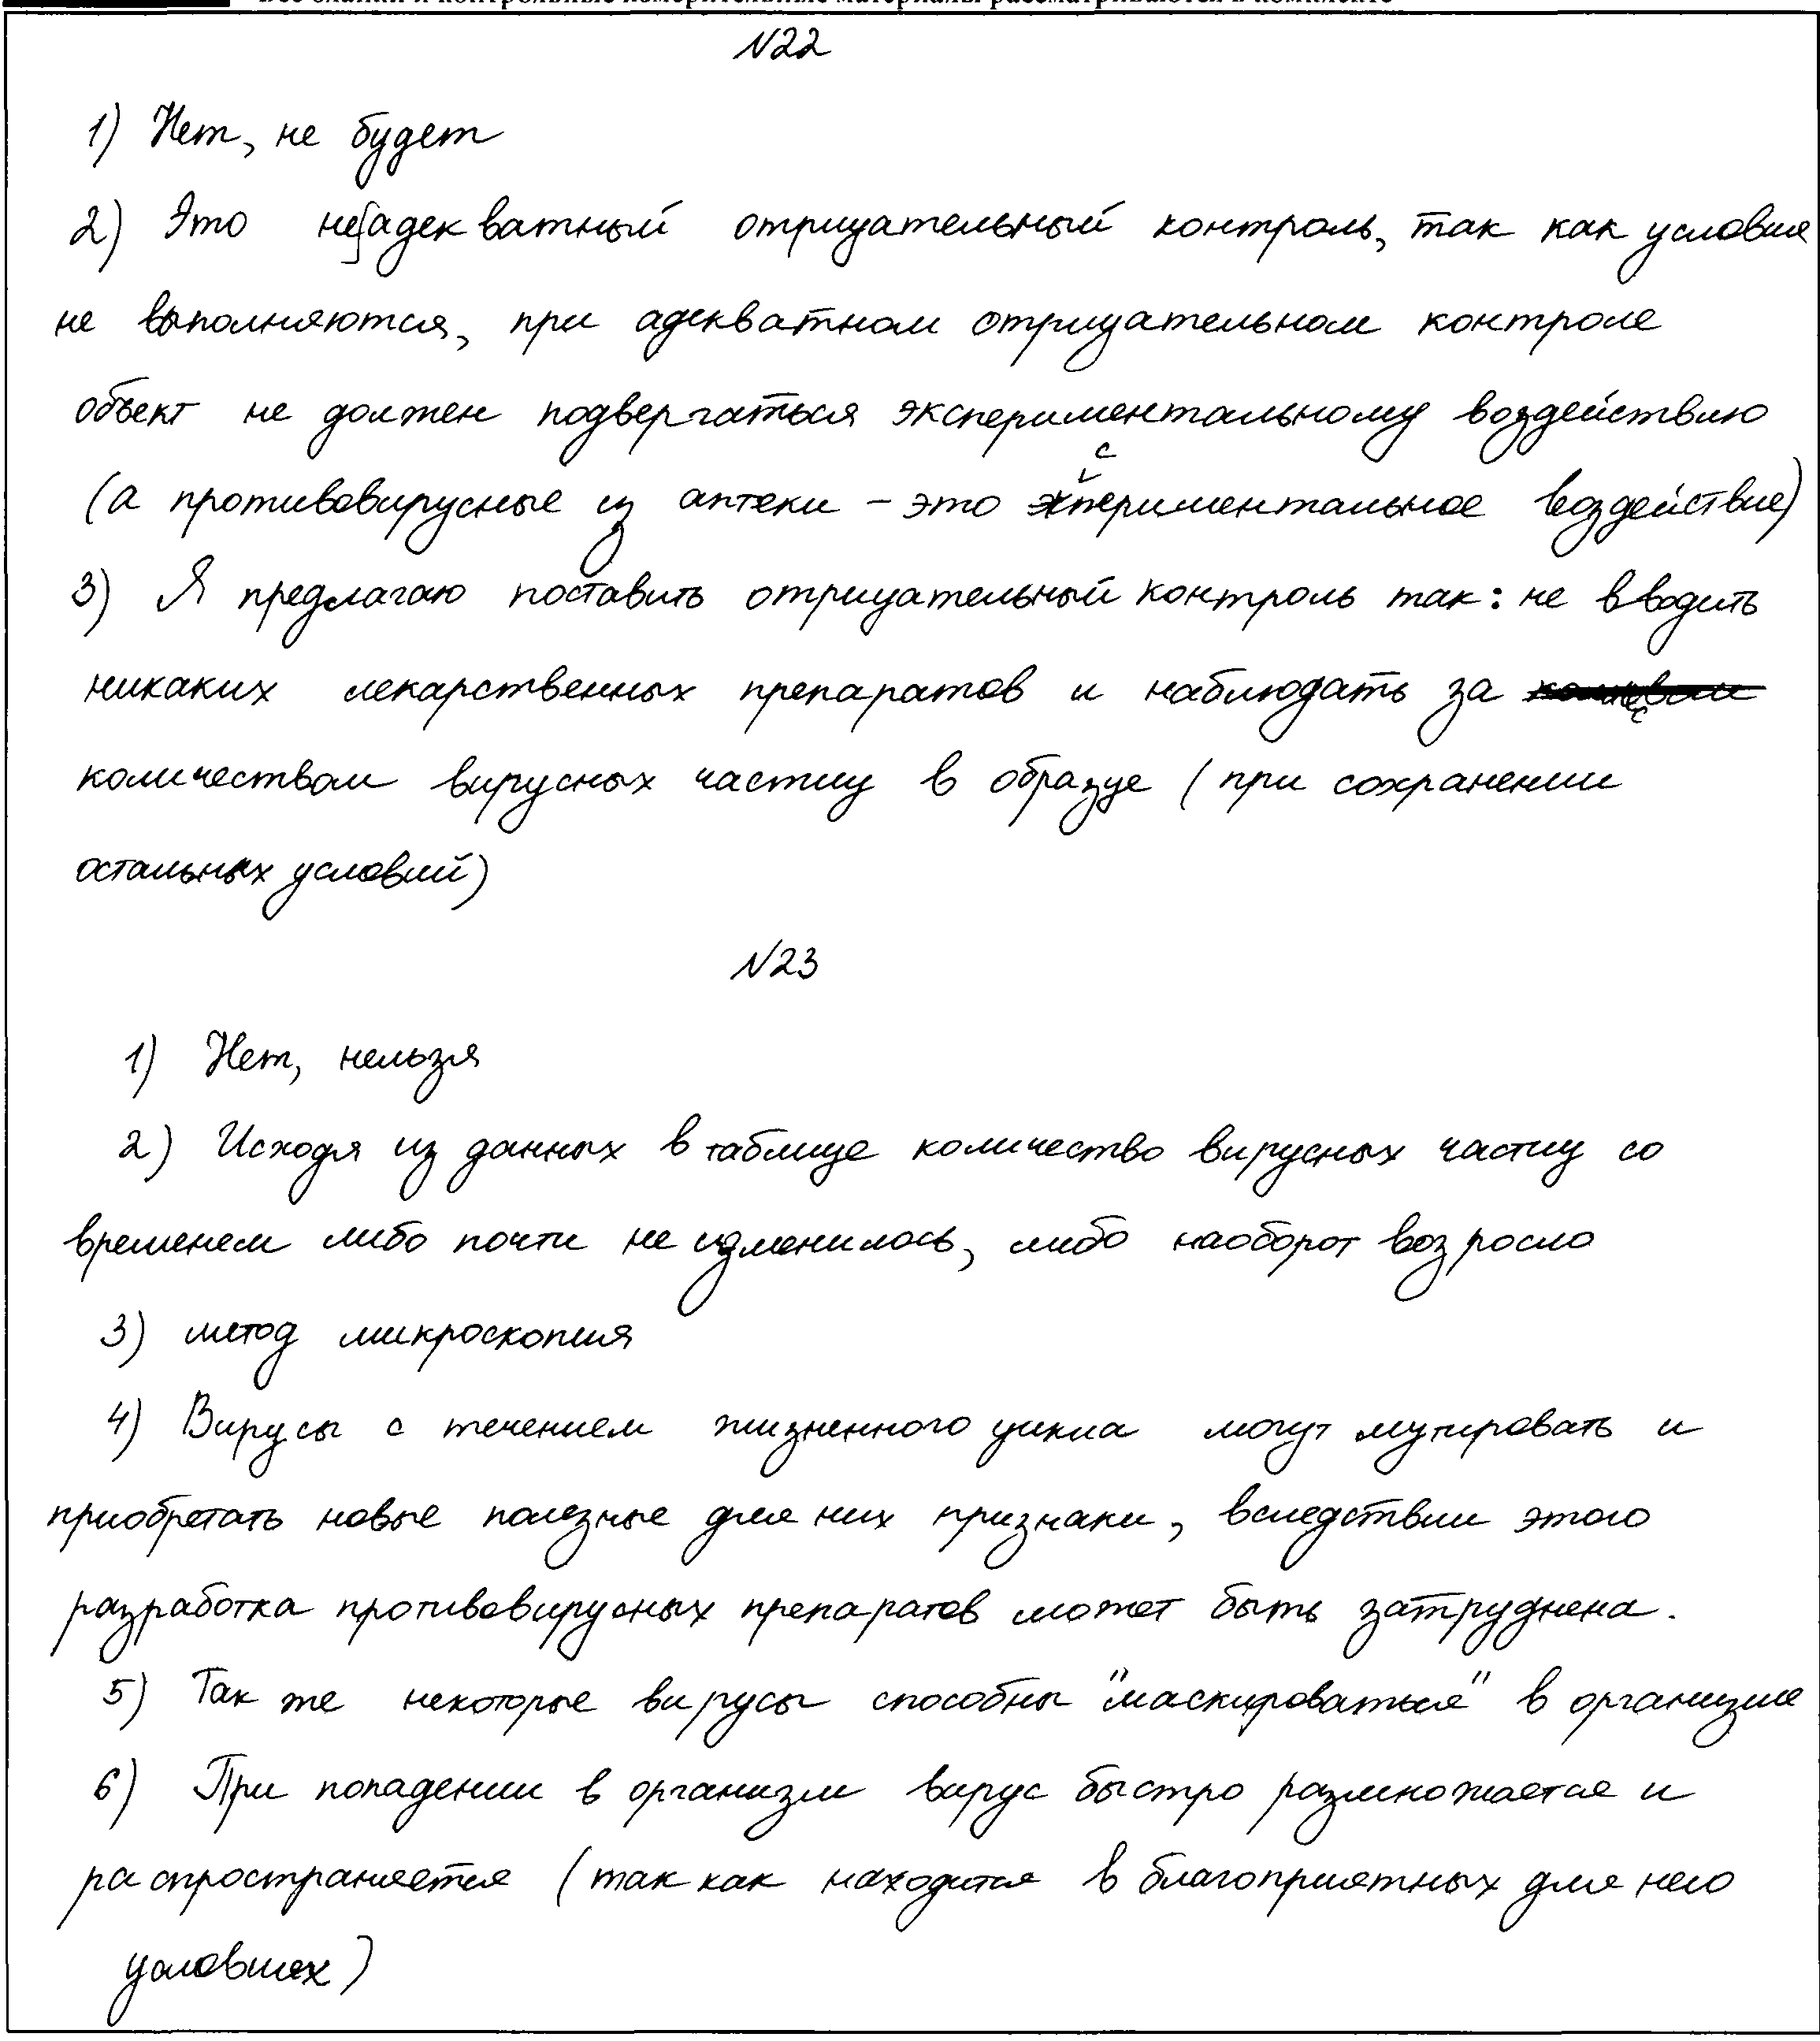 №22
1) Нет, не будет
2) Это неадекватный отрицательный контроль, так как условия
не выполняются, при адекватном отрицательном контроле
объект не должен подвергаться экспериментальному воздействию
(а противовирусные из аптеки – это экспериментальное воздействие)
3) Я предлагаю поставить отрицательный контроль так: не вводить
никаких лекарственных препаратов и наблюдать за
количеством вирусных частиц в образце (при сохранении
остальных условий)
№23
1) Нет, нельзя
2) Исходя из данных в таблице количество вирусных частиц со
временем либо почти не изменилось, либо наоборот возросло
3) метод микроскопия
4) Вирусы с течением жизненного цикла могут мутировать и
приобретать новые полезные для них признаки, вследствии этого
разработка противовирусных препаратов может быть затруднена.
5) Так же некоторые вирусы способны "маскироваться" в организме
6) При попадении в организм вирус быстро размножается и
распространяется (так как находится в благоприятных для него
условиях)